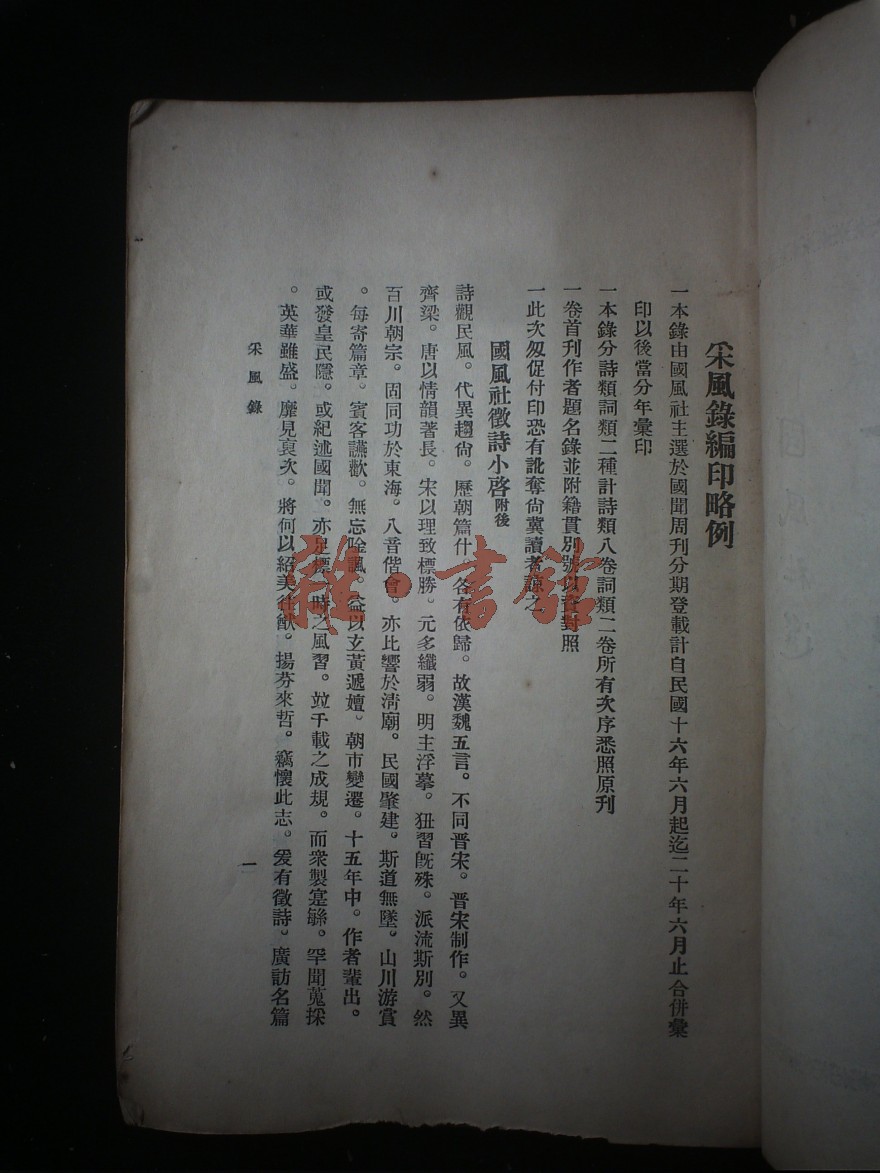 采風錄編印略例
一本錄由國風社主選於國聞周刊分期登載計自民國十六年六月起迄二十年六月止合併彙
印以後當分年彙印
一本錄分詩類詞類二種計詩類八卷詞類二卷所有次序悉照原刊
一卷首刊作者題名錄並附籍貫別號以查對照
一此次匆促付印恐有訛奪尙冀讀者諒之
國風社徵詩小啓附後
詩觀民風。代異趨尙。歷朝篇什。各有依歸。故漢魏五言。不同晋宋。晋宋制作。又異
齊梁。唐以情韻著長。宋以理致標勝。元多纖弱。明主浮摹。狃習旣殊。派流斯別。然
百川朝宗。固同功於東海。八音偕會。亦比響於淸廟。民國肇建。斯道無墜。山川游賞
。每寄篇章。賓客讌歡。無忘唫諷。益以玄黃遞嬗。朝市變遷。十五年中。作者輩出。
或發皇民隱。或紀述國聞。亦足標一時之風習。竝千載之成規。而衆製寔緐。罕聞蒐採
。英華雖盛。靡見裒次。將何以紹美往猷。揚芬來哲。竊懷此志。爰有徵詩。廣訪名篇
采風錄
一
雜·書館